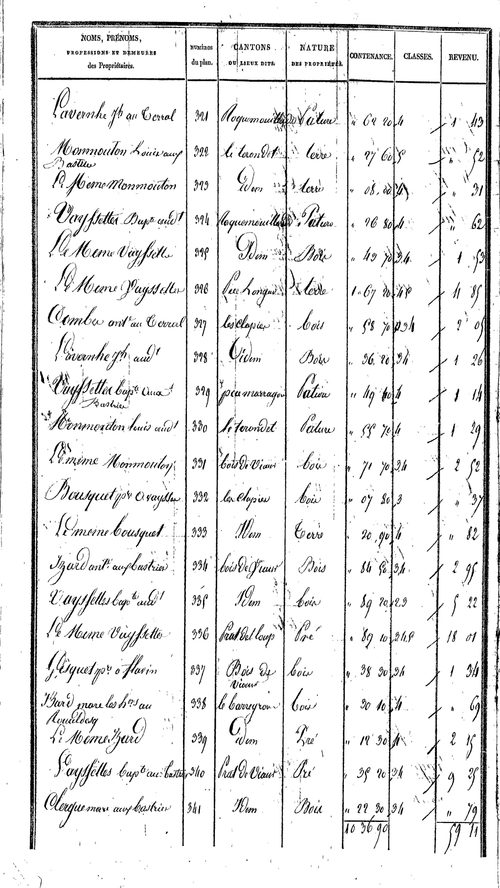 NOMS, PRÉNOMS, PROFESSIONS ET DEMEURES des Propriétaires. NUMÉROS du plan. CANTONS OU LIEUX DITS. NATURE DES PROPRIÉTÉS. CONTENANCE. CLASSES. REVENU.
Lavernhe jh au Corral 321 Roquemouill Pature " 62 20 4 1 43
Monmouton Louis aux Bastries 322 le terondet terre " 27 60 5 " 52
Le Meme Monmouton 323 Idem terre " 08 00 " 31
Vayssettes Bapte audt 324 Roquemouill Pature " 26 80 4 " 62
Le Meme Vayssette 325 Idem Bois " 43 70 3.4 1 53
Le Meme Vayssettes 326 terre 1 67 20 4.5 4 85
Combes ant au Correal 327 les Clapies bois " 58 70 3 4 2 05
Lavernhe jh audt 328 Idem Bois " 36 20 3.4 1 26
Vayssettes bapte aux Bastries 329 puumarragou Pature " 49 4 1 14
Monmouton Louis audt 330 le terondet Pature " 55 70 4 1 29
Le même Monmouton 331 bois de Viaur bois " 71 70 3.4 2 52
Bousquet 332 les clapies bois " 07 80 3 " 37
Le meme bousquet 333 Idem Terre " 20 90 4 " 82
Izard ant aux bastries 334 bois de Viaur Bois " 84 50 3.4 2 95
Vayssettes bapte audt 335 Idem bois " 89 20 2.3 5 22
Le Meme Vayssettes 336 Prat del loup Pré " 89 10 3.4.5 18 01
Gisquet a flavin 337 Bois de Viaur bois " 38 30 3.4 1 34
Izard marc les hers au 338 le Carreyrou bois " 30 10 4 " 69
Le Meme Izard 339 Idem Pré " 12 30 4 2 15
Vayssettes bapte aux bastries 340 Prat de Viaur Pré " 35 20 3.4 9 25
Clergue marc aux bastries 341 Idem Bois " 22 30 3.4 " 79
10 36 90 59 11